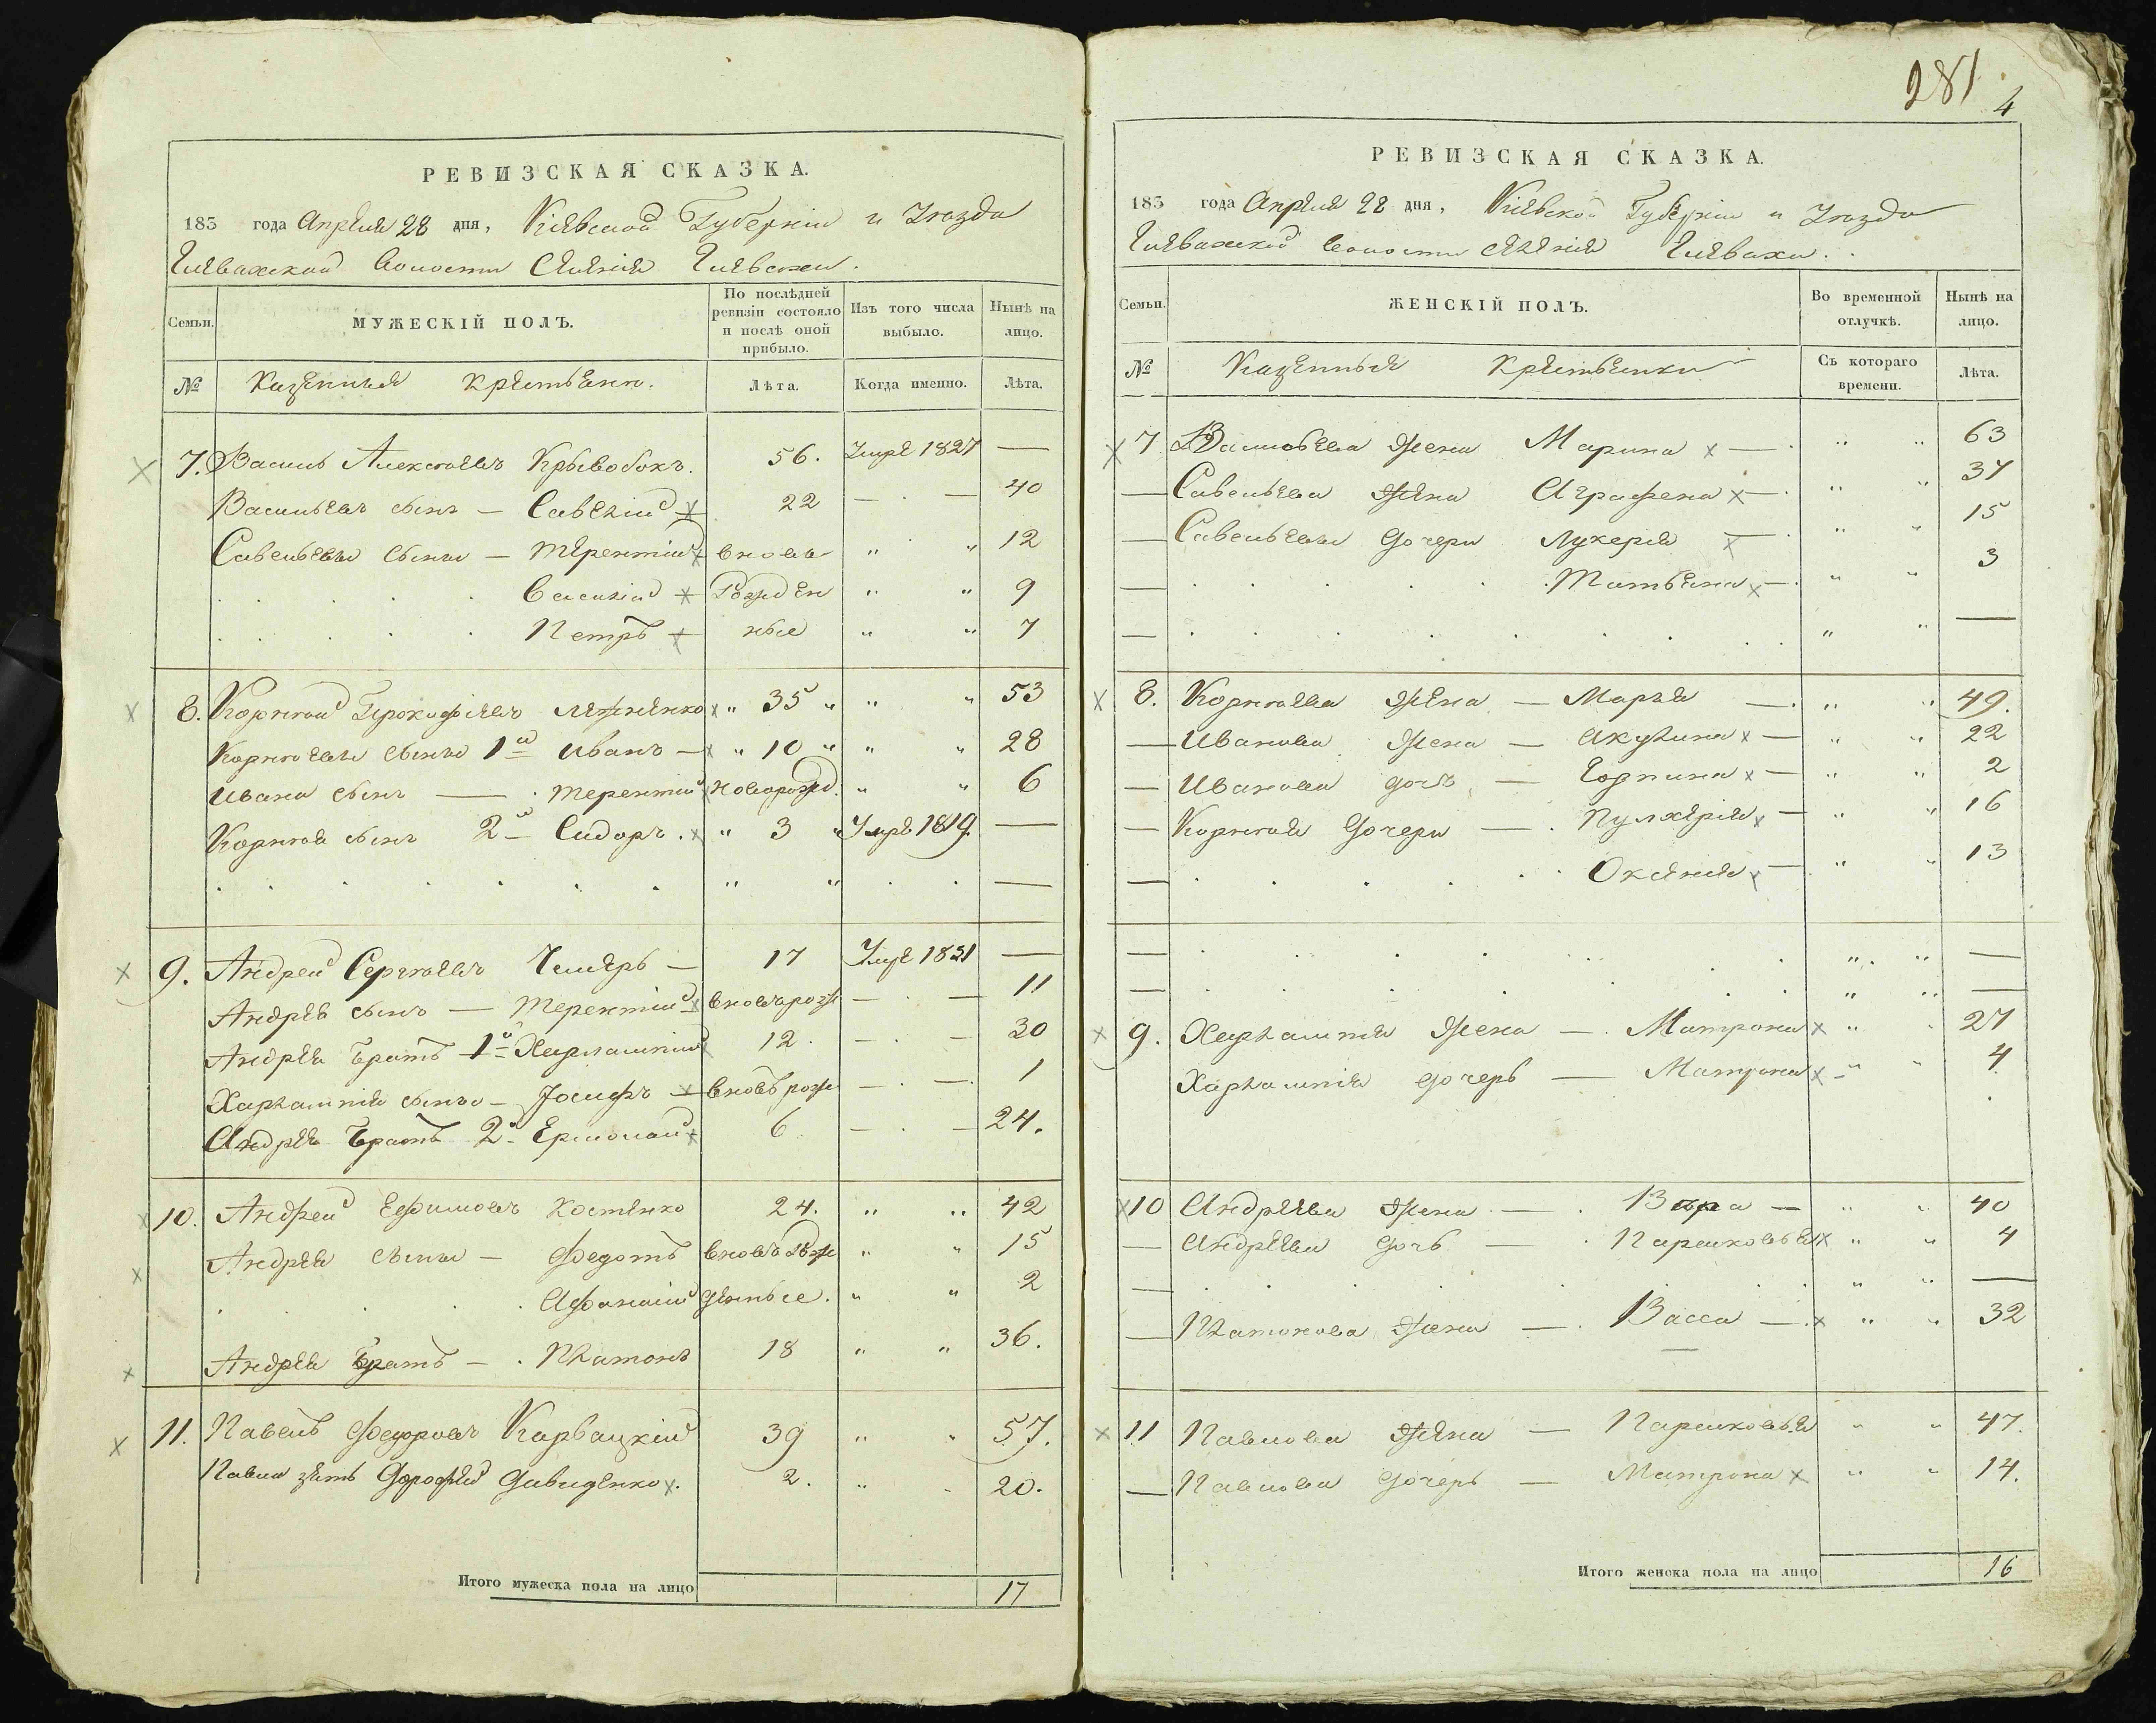 РЕВИЗСКАЯ СКАЗКА.
183 года Апреля 28 дня, Кіевской Губерніи и Уезда
волости Селенія
Семьи. МУЖЕСКІЙ ПОЛЪ. По послѣдней ревизіи состояло и послѣ оной прибыло. Изъ того числа выбыло. Нынѣ на лицо.
№ Казенные крестьяне. Лѣта. Когда именно. Лѣта.
7. Василь Алексеевъ Крывобокъ. 56. Умре 1827 —
Васильевъ сынъ — Савелий 22 — . — 40
Савельевы сыны — Терентий вновь " " 12
Василий Рожден " " 9
Петръ ные " " 7
8. Корней Прокофиевъ " 35 " " " 53
Корнеевы сыны 1й Иванъ — " 10 " " " 28
Ивана сынъ — Терентий новорожд. " " 6
Корнея сынъ 2й Сидоръ. " 3 " Умре 1819 —
" " . . —
9. Андрей Сергеевъ — 17 Умре 1831 —
Андрея сынъ — Терентий вновь рож — . — 11
Андрея братъ 1й Харлампий 12. — . — 30
Харлампия сынъ — Иосифъ — вновь рож — . — 1
Андрея братъ 2й Ермолай 6 — . — 24.
10. Андрей Ефимовъ Костенко 24. " " 42
Андрея сыны — Федотъ вновь рож " " 15
Афанасий денные. " " 2
Андрея братъ — . Платонъ 18 " " 36.
11. Павелъ Федоровъ Карвацкий 39 " " 57.
Павла зять Дорофей Давиденко. 2. " " 20.
Итого мужеска пола на лицо 17
281
4
РЕВИЗСКАЯ СКАЗКА.
183 года Апреля 28 дня, Кіевской Губерніи и Уезда
волости селенія
Семьи. ЖЕНСКІЙ ПОЛЪ. Во временной отлучкѣ. Нынѣ на лицо.
№ Казенные Крестьянки Съ котораго времени. Лѣта.
7 Васильева жена Марина — " " 63
— Савельева жена Аграфена — " " 37
— Савельевы дочери Лукерія — " " 15
— Татьяна — " " 3
— " " —
8. Корнеева жена — Марья — " " 49.
— Иванова жена — Акулина — " " 22
— Иванова дочь — Горпина — " " 2
— Корнея дочери — Пулхерія — " " 16
— Оксенія — " " 13
— " " —
— " " —
9. Харлампия жена — Матрона " " 27
Харлампия дочерь — Матрона " " 4
10 Андреева жена — Вера — " " 40
— Андреева дочь — Парасковья " " 4
— " " —
— Платонова жена — Васса — " " 32
11 Павлова жена — Парасковья " " 47.
— Павлова дочерь — Матрона " " 14.
Итого женска пола на лицо 16